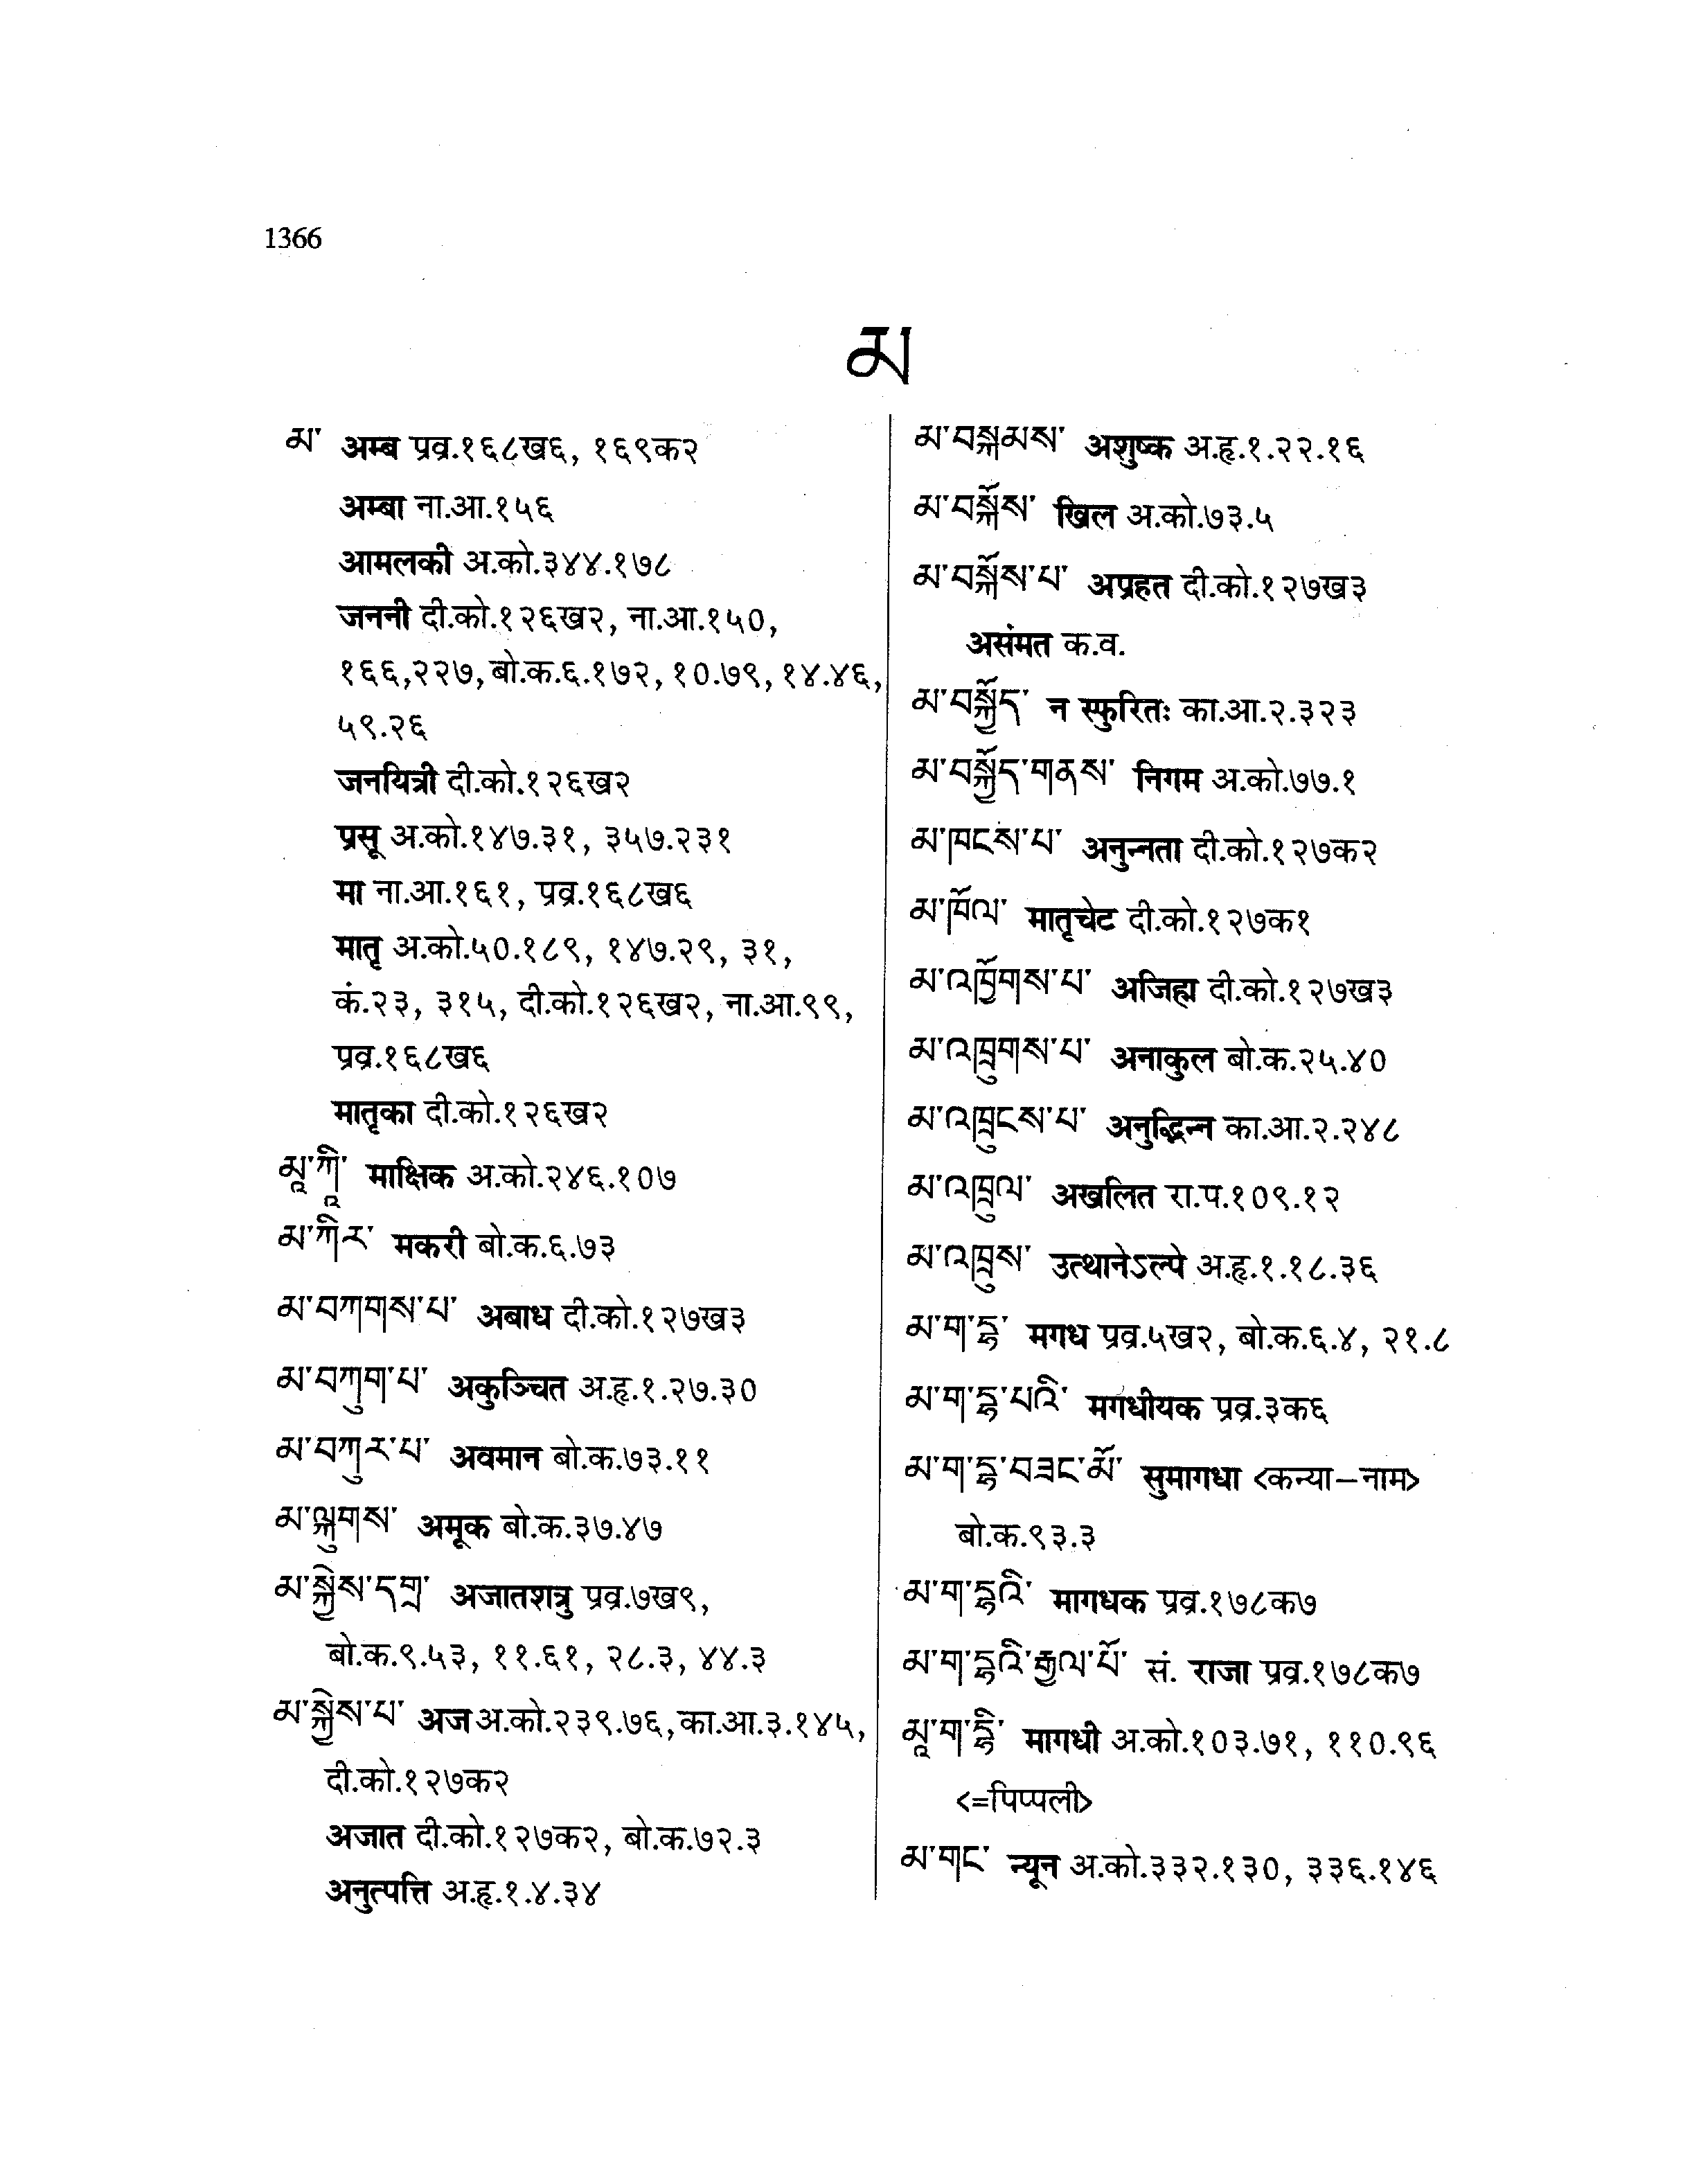 1366
མ
མ་ अम्ब प्रव्र.१६८ख६, १६९क२
अम्बा ना.आ.१५६
आमलकी अ.को.३४४.१७८
जननी दी.को.१२६ख२, ना.आ.१५0,
१६६,२२७, बो.क.६.१७२, १0.७९, १४.४६,
५९.२६
जनयित्री दी.को.१२६ख२
प्रसू अ.को.१४७.३१, ३५७.२३१
मा ना.आ.१६१, प्रव्र.१६८ख६
मातृ अ.को.५0.१८९, १४७.२९, ३१,
कं.२३, ३१५, दी.को.१२६ख२, ना.आ.९९,
प्रव्र.१६८ख६
मातृका दी.को.१२६ख२
མཱ་ཀཱི་ माक्षिक अ.को.२४६.१0७
མ་ཀིར་ मकरी बो.क.६.७३
མ་བཀགས་པ་ अबाध दी.को.१२७ख३
མ་བཀུག་པ་ अकुञ्चित अ.हृ.१.२७.३0
མ་བཀུར་པ་ अवमान बो.क.७३.११
མ་ལྐུགས་ अमूक बो.क.३७.४७
མ་སྐྱེས་དགྲ་ अजातशत्रु प्रव्र.७ख९,
बो.क.९.५३, ११.६१, २८.३, ४४.३
མ་སྐྱེས་པ་ अज अ.को.२३९.७६,का.आ.३.१४५,
दी.को.१२७क२
अजात दी.को.१२७क२, बो.क.७२.३
अनुत्पत्ति अ.हृ.१.४.३४
མ་བསྐམས་ अशुष्क अ.हृ.१.२२.१६
མ་བསྐོས་ खिल अ.को.७३.५
མ་བསྐོས་པ་ अप्रहत दी.को.१२७ख३
असंमत क.व.
མ་བསྐྱོད་ न स्फुरितः का.आ.२.३२३
མ་བསྐྱོད་གནས་ निगम अ.को.७७.१
མ་ཁངས་པ་ अनुन्नता दी.को.१२७क२
མ་ཁོལ་ मातृचेट दी.को.१२७क१
མ་འཁྱོགས་པ་ अजिह्म दी.को.१२७ख३
མ་འཁྲུགས་པ་ अनाकुल बो.क.२५.४0
མ་འཁྲུངས་པ་ अनुद्भिन्न का.आ.२.२४८
མ་འཁྲུལ་ अखलित रा.प.१0९.१२
མ་འཁྲུས་ उत्थानेऽल्पे अ.हृ.१.१८.३६
མ་ག་དྷ་ मगध प्रव्र.५ख२, बो.क.६.४, २१.८
མ་ག་དྷ་པའི་ मगधीयक प्रव्र.३क६
མ་ག་དྷ་བཟང་མོ་ सुमागधा <कन्या–नाम>
बो.क.९३.३
མ་ག་དྷའི་ मागधक प्रव्र.१७८क७
མ་ག་དྷའི་རྒྱལ་པོ་ सं. राजा प्रव्र.१७८क७
མཱ་ག་དྷི་ मागधी अ.को.१0३.७१, ११0.९६
<=पिप्पली>
མ་གང་ न्यून अ.को.३३२.१३0, ३३६.१४६